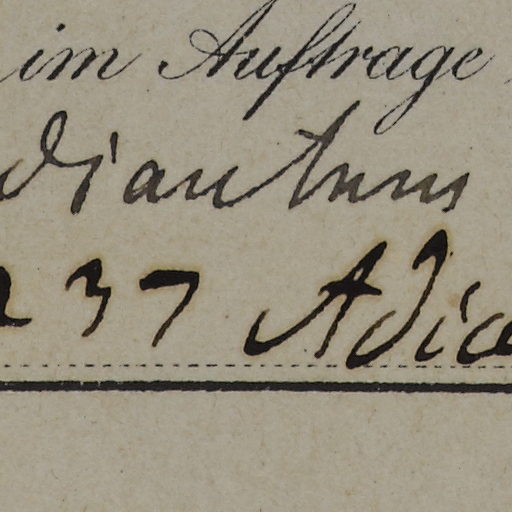 im Auftrage
diantum
237 Adia